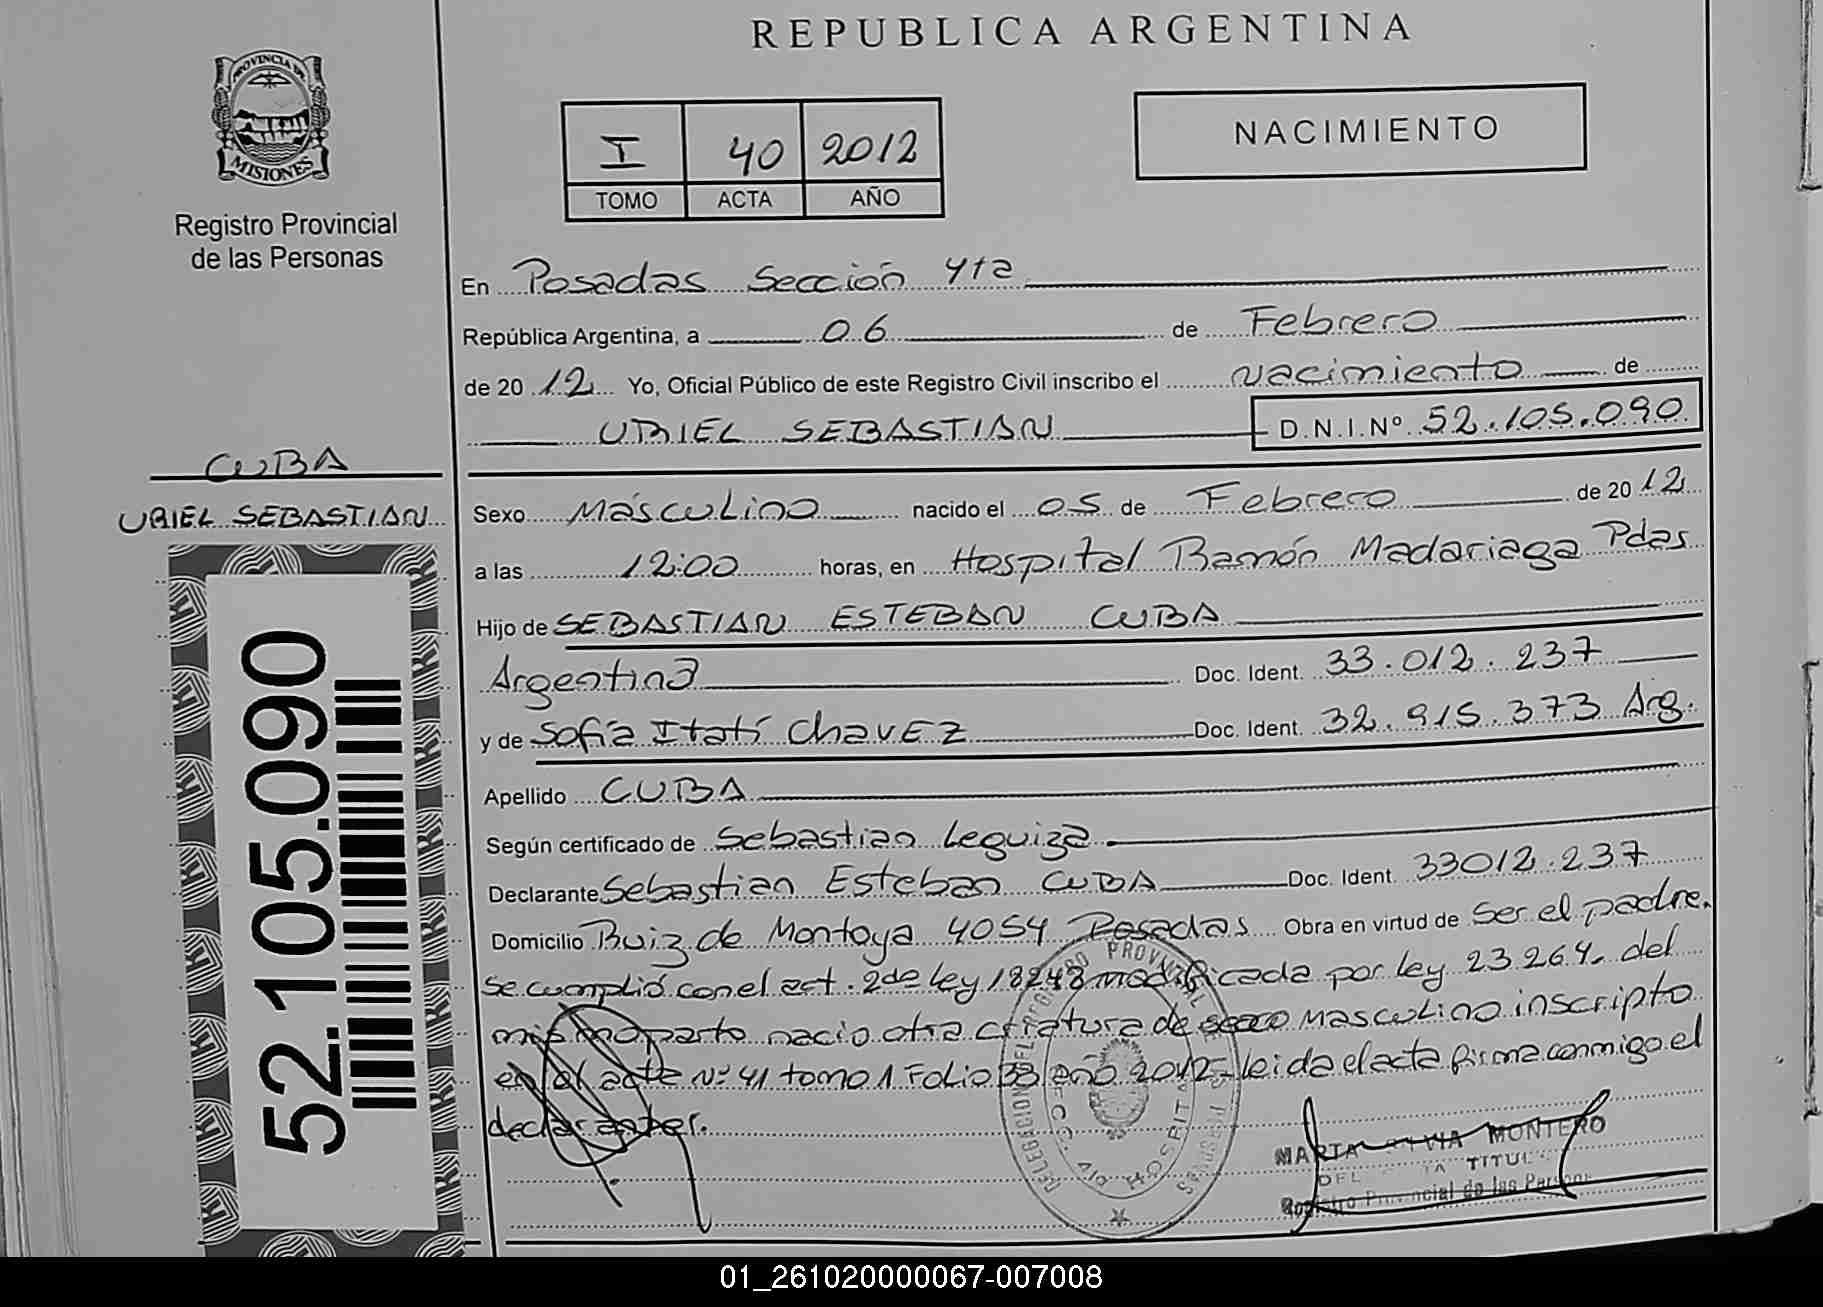 REPUBLICA ARGENTINA
PROVINCIA DE
MISIONES
Registro Provincial
de las Personas
I 40 2012
TOMO ACTA AÑO
NACIMIENTO
En Posadas Sección 4ta
República Argentina, a 06 de Febrero
de 2012 Yo, Oficial Público de este Registro Civil inscribo el nacimiento de
URIEL SEBASTIAN D.N.I.Nº 52.105.090
CUBA
URIEL SEBASTIAN
52.105.090
Sexo Masculino nacido el 05 de Febrero de 2012
a las 12:00 horas, en Hospital Ramón Madariaga Pdas
Hijo de SEBASTIAN ESTEBAN CUBA
Argentina Doc. Ident. 33.012.237
y de Sofía Itatí ChavEZ Doc. Ident. 32.915.373 Arg.
Apellido CUBA
Según certificado de Sebastian Leguiza
Declarante Sebastian Esteban CUBA Doc. Ident. 33012.237
Domicilio Ruiz de Montoya 4054 Posadas Obra en virtud de Ser el padre.
Se cumplió con el art. 2 de ley 18248 modificada por ley 23.264. del
mismo parto nacio otra criatura de sexo Masculino inscripto
en el acta Nº 41 tomo 1 Folio 33 año 2012 - leida el acta firma conmigo el
declarante.
MARTA MONTERO
Registro Provincial de las Personas
01_261020000067-007008